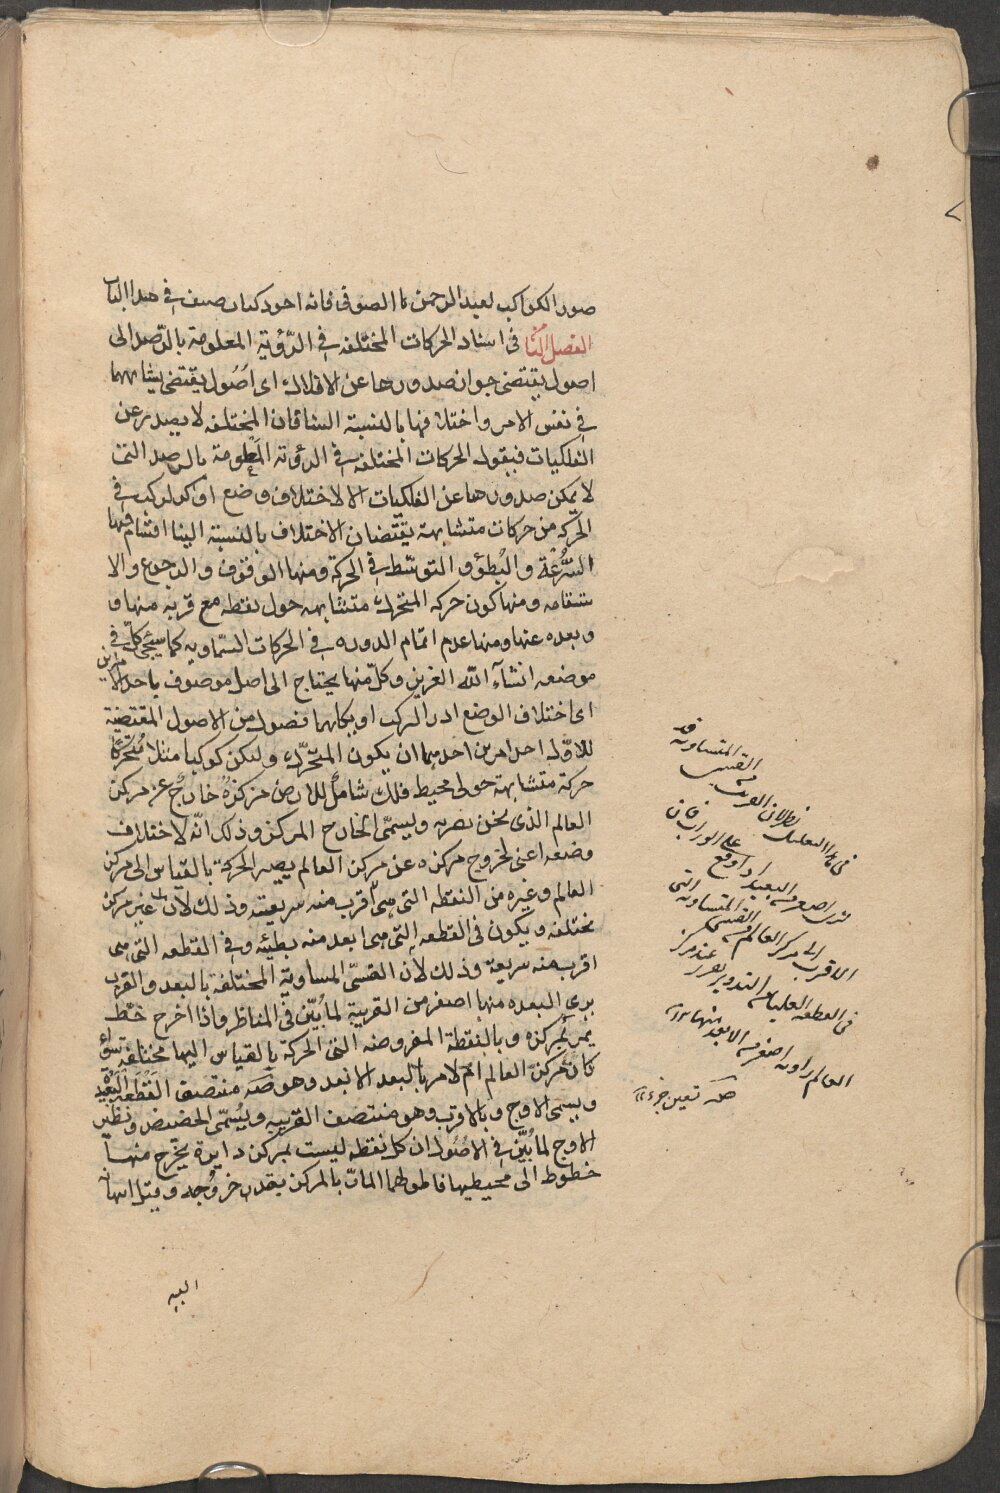 صور الكواكب لعبد الرحمن الصوفى فانه اجود كتاب صنف فى هذا الباب
الفصل الثامن فى اسناد الحركات المختلفه فى الرؤية المعلومة بالرصد الى
اصول يقتضى جواز صدورها عن الافلاك اى اصول يقتضى تشابهها
فى نفس الامر واختلافها بالنسبة الينا فان المختلفه لا يصدر عن
الفلكيات فيقول الحركات المختلفه فى الرؤية المعلومة بالرصد التى
لا يمكن صدورها عن الفلكيات الا لاختلاف وضع او لتركب فى
الحركه من حركات متشابهة يقتضيان الاختلاف بالنسبة الينا اقسام فمنها
السرعة والبطؤ والتوسط فى الحركة ومنها الوقوف والرجوع والا
ستقامه ومنها كون حركه المتحرك متشابهه حول نقطه مع قربه منها و
وبعده عنها ومنها عدم اتمام الدوره فى الحركات السماويه كما سيجئ كل فى
موضعه انشآء الله العزيز وكل منها يحتاج الى اصل موصوف باحد الامرين
اى اختلاف الوضع او التركب او بكليهما فصول من الاصول المقتضية
للاول احد امرين احدهما ان يكون المتحرك وليكن كوكبا مثلا متحركا
حركة متشابهة حول محيط فلك شامل للارض مركزه خارج عن مركز
العالم الذى نحن بقربه ويسمى الخارج المركز وذلك انه لاختلاف
وضعه اعنى لخروج مركزه عن مركز العالم يصير الحركة بالقياس الى مركز
العالم وغيره من النقطه التى هى اقرب منه سريعة وذلك لان غير مركز
مختلفه ويكون فى القطعه التى هى ابعد منه بطيئه وفى القطعه التى هى
اقرب منه سريعة وذلك لان القسى المساوية المختلفة بالبعد والقرب
يرى البعيده منها اصغر من القريبة لما بين فى المناظر واذا اخرج خط
يمر بمركزه وبالنقطة المفروضه التى الحركة بالقياس اليها مختلفه سواء
كان مركز العالم ام لا مر بالبعد الابعد وهو منتصف القطعة البعيدة
ويسمى الاوج وبالاقرب وهو منتصف القريبه ويسمى الحضيض ونظير
الاوج لما بين فى الاصول ان كل نقطه ليست بمركز دايرة يخرج منها
خطوط الى محيطها فاطولها المار بالمركز بقدر خروجه وميل
اليه
القسى المتساويه قد
فى هذا التعليل نظر لان القريب
ترى اصغر من البعيد اذا وقع على الوراب فان
الاقرب الى مركز العالم من القسى المتساويه التى
فى القطعه العليا من التدوير عند مركز
العالم زاويه اصغر من الابعد منها